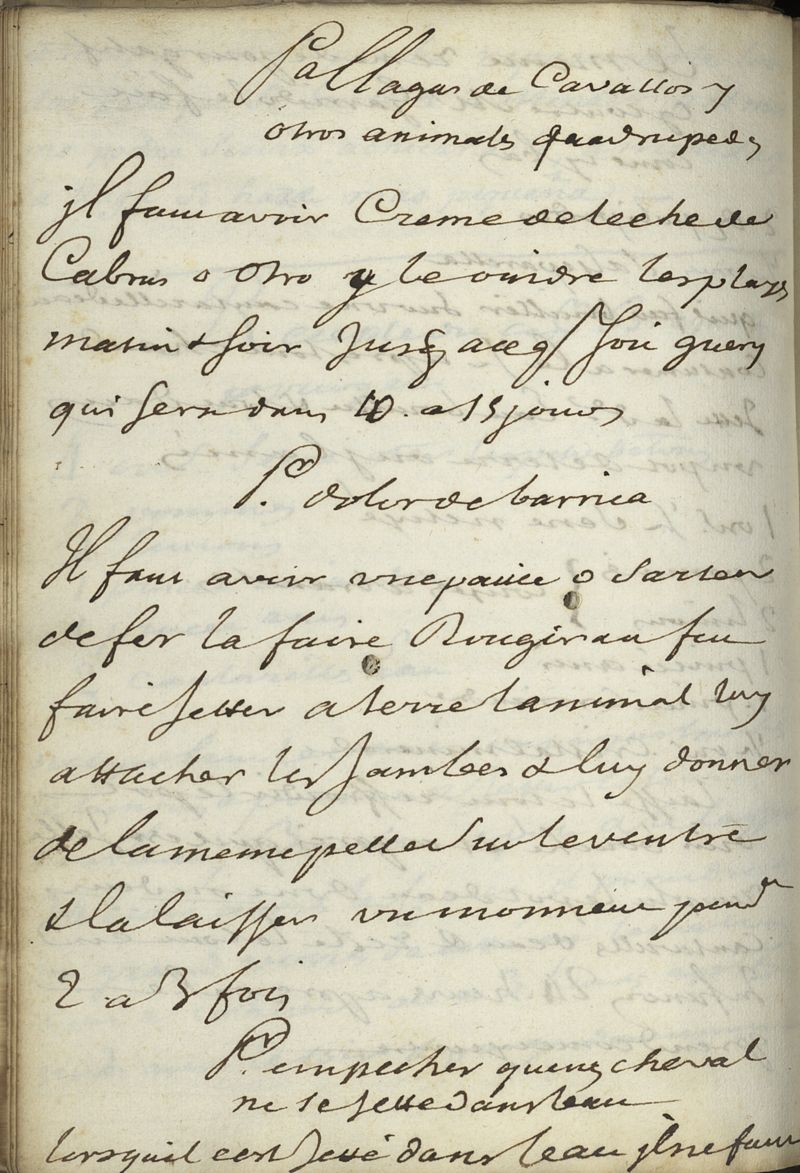 Pa llagas de Cavallos y
otros animales quadrupedes
jl faut avoir Creme de leche de
Cabras o otro y le oindre les playes
matin & soir Jusq aceq soit guery
qui sera dans 10. a 15 jours
Pr. dolor de barriga
Il faut avoir une paille o sarten
de fer la faire Rougir au feu
faire Jetter a terre l animal luy
attacher les Jambes & luy donner
de la meme pelle sur le ventre
& la laisser un moment pendt
2 a 3 fois
Pr. empecher qu un cheval
ne se Jette dans leau
lorsquil cest Jetté dans leau jl ne faut